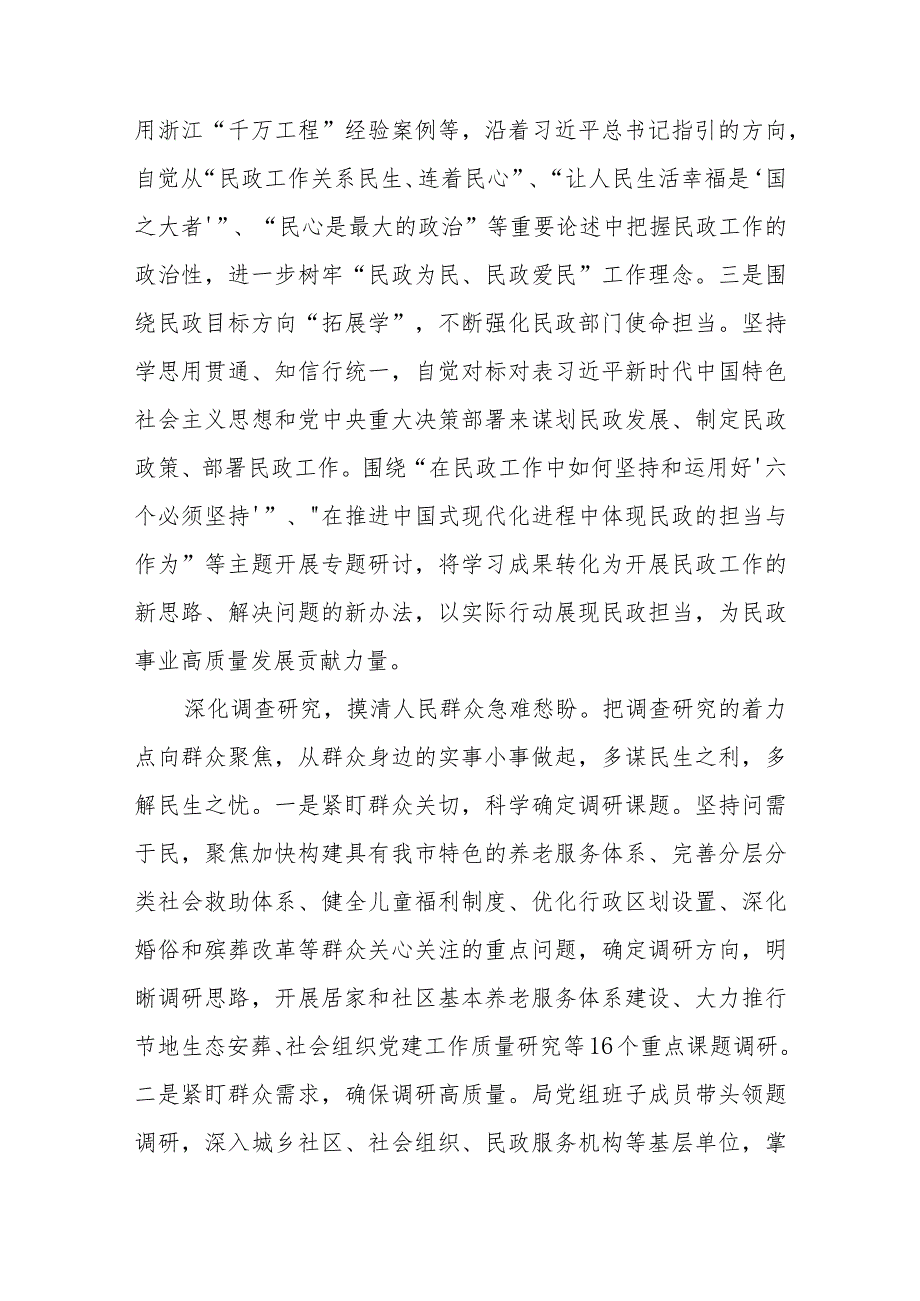 用浙江“千万工程”经验案例等，沿着习近平总书记指引的方向，
自觉从“民政工作关系民生、连着民心”、“让人民生活幸福是‘国
之大者'”、“民心是最大的政治”等重要论述中把握民政工作的
政治性，进一步树牢“民政为民、民政爱民”工作理念。三是围
绕民政目标方向“拓展学”，不断强化民政部门使命担当。坚持
学思用贯通、知信行统一，自觉对标对表习近平新时代中国特色
社会主义思想和党中央重大决策部署来谋划民政发展、制定民政
政策、部署民政工作。围绕“在民政工作中如何坚持和运用好'六
个必须坚持'”、"在推进中国式现代化进程中体现民政的担当与
作为”等主题开展专题研讨，将学习成果转化为开展民政工作的
新思路、解决问题的新办法，以实际行动展现民政担当，为民政
事业高质量发展贡献力量。
深化调查研究，摸清人民群众急难愁盼。把调查研究的着力
点向群众聚焦，从群众身边的实事小事做起，多谋民生之利，多
解民生之忧。一是紧盯群众关切，科学确定调研课题。坚持问需
于民，聚焦加快构建具有我市特色的养老服务体系、完善分层分
类社会救助体系、健全儿童福利制度、优化行政区划设置、深化
婚俗和殡葬改革等群众关心关注的重点问题，确定调研方向，明
晰调研思路，开展居家和社区基本养老服务体系建设、大力推行
节地生态安葬、社会组织党建工作质量研究等16个重点课题调研。
二是紧盯群众需求，确保调研高质量。局党组班子成员带头领题
调研，深入城乡社区、社会组织、民政服务机构等基层单位，掌